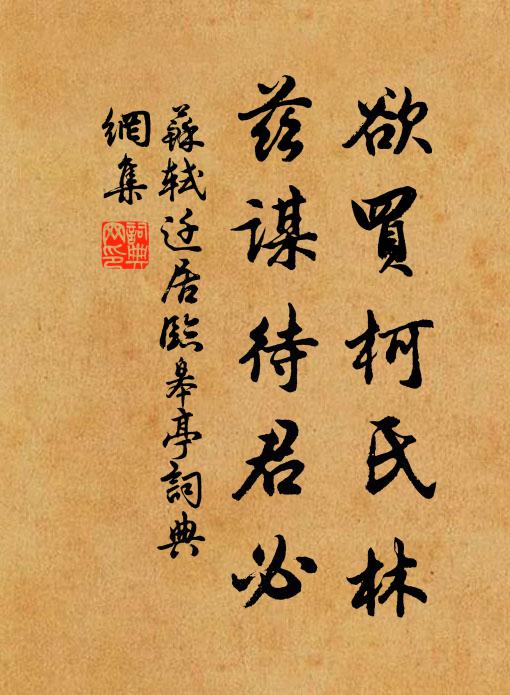 欲買柯氏林
茲謀待君必
蘇軾迁居臨皋亭詞典
網集
詞典
网印